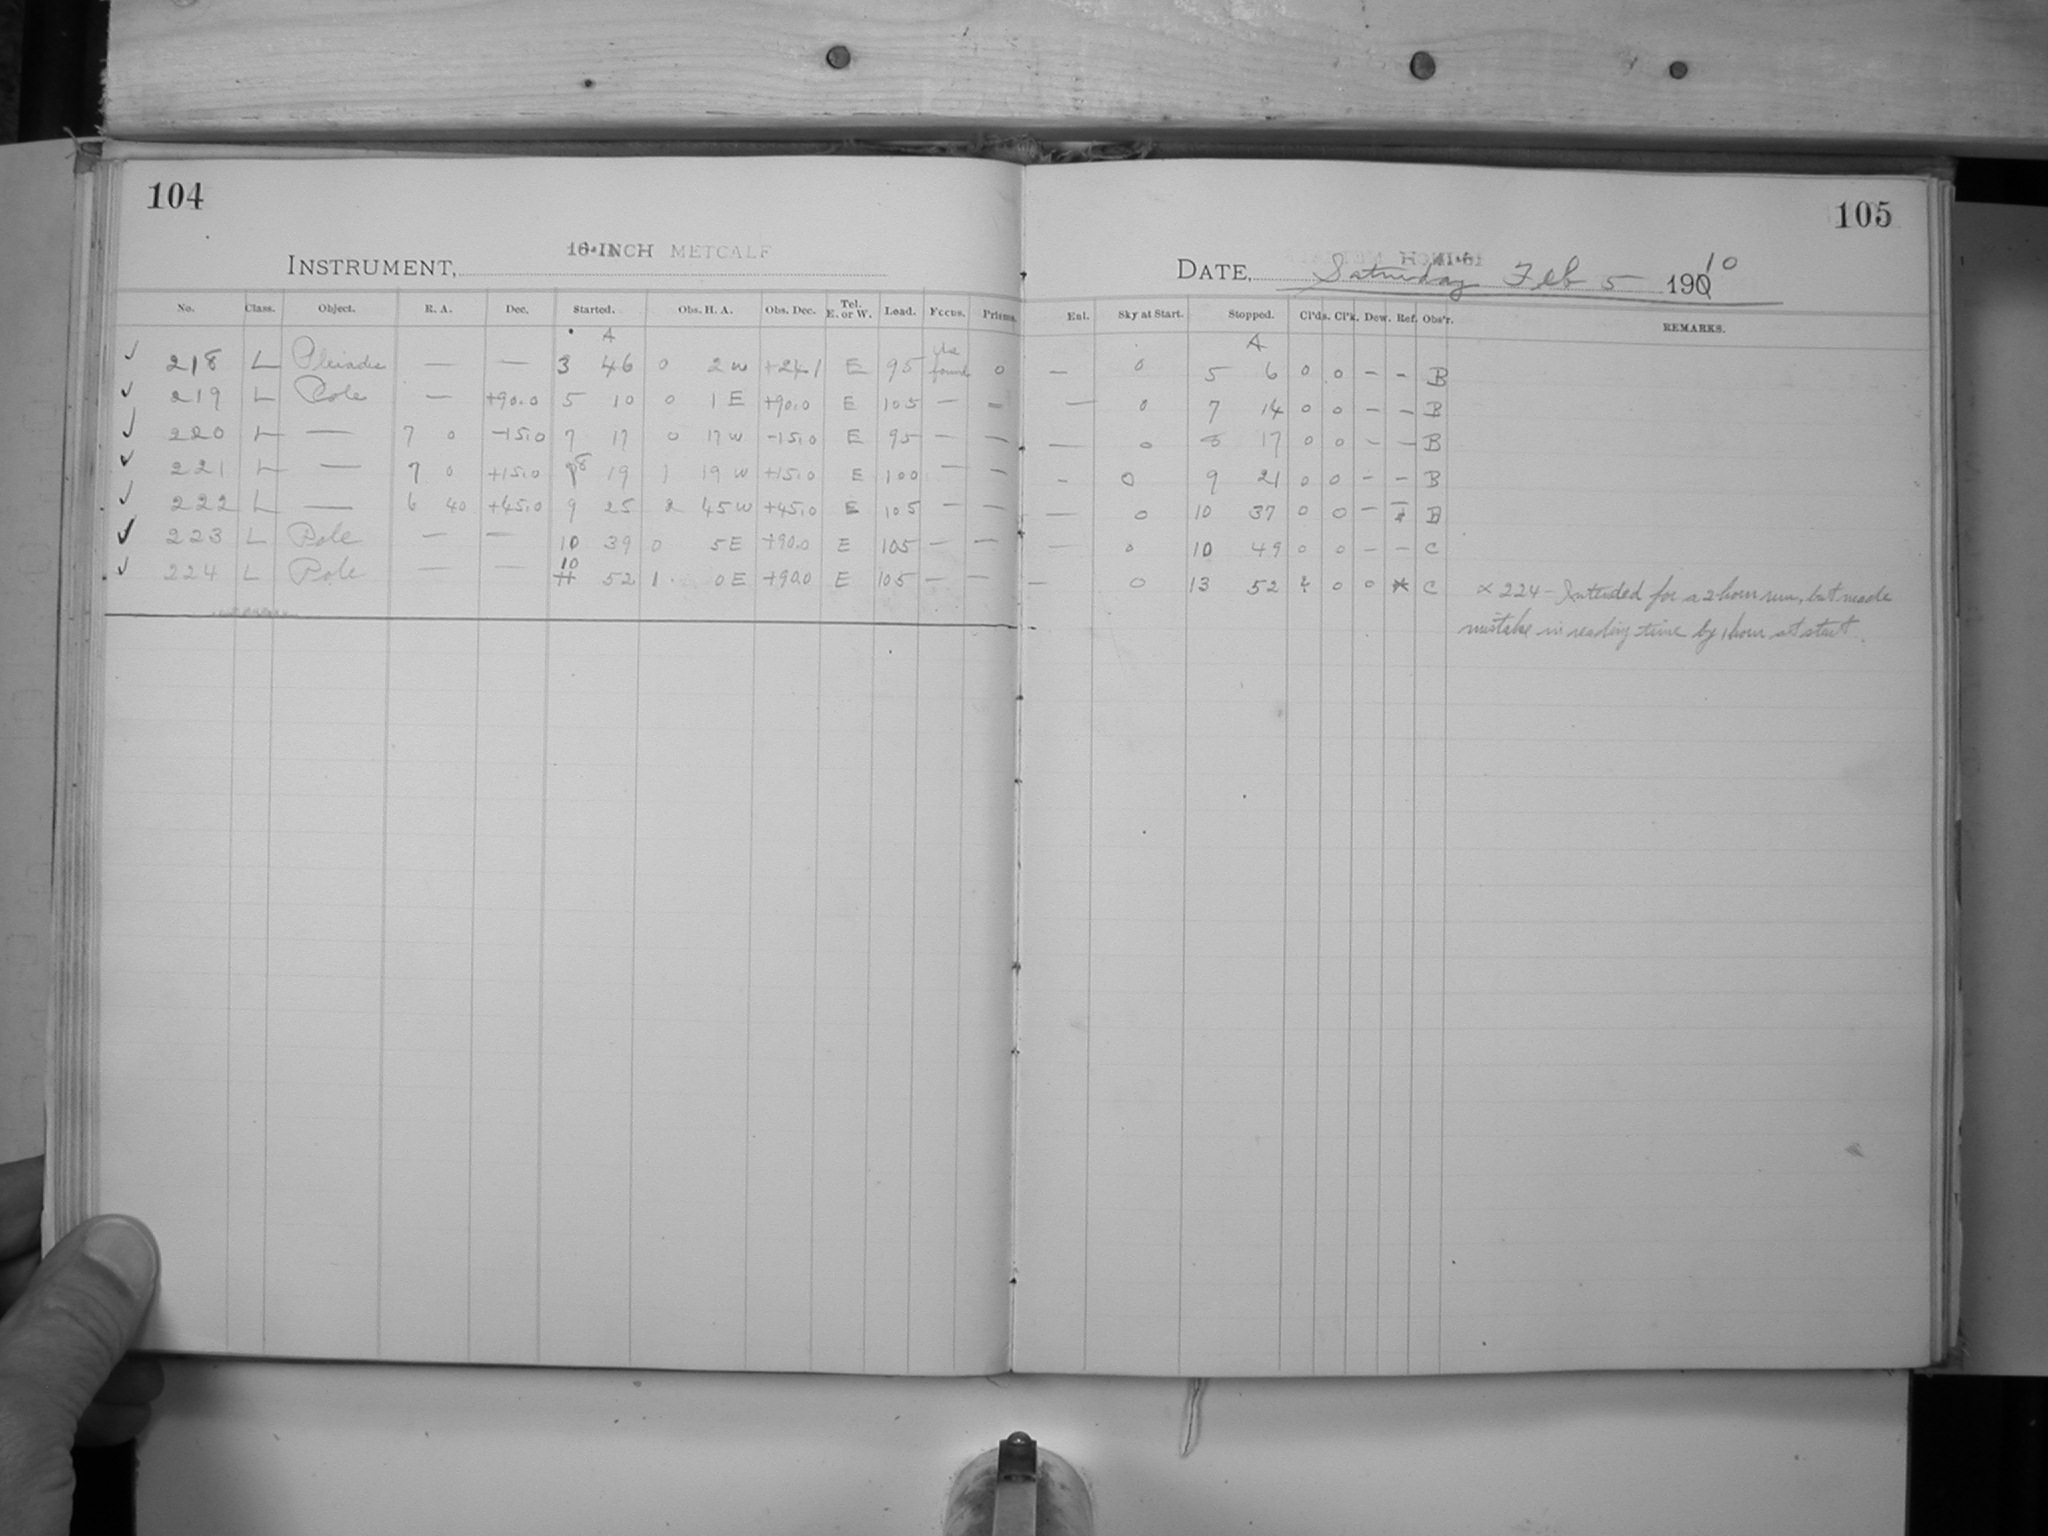 104
INSTRUMENT, 16-INCH METCALF
No. Class. Object. R. A. Dec. Started. Obs. H. A. Obs. Dec. Tel. E. or W. Load. Focus. Prisms.
A
✓ 218 L Pleiades — — 3 46 0 2 W +24.1 E 95 As found 0
✓ 219 L Pole — +90.0 5 10 0 1 E +90.0 E 105 — —
✓ 220 L — 7 0 -15.0 7 17 0 17 W -15.0 E 95 — —
✓ 221 L — 7 0 +15.0 8 19 1 19 W +15.0 E 100 — —
✓ 222 L — 6 40 +45.0 9 25 2 45 W +45.0 E 105 — —
✓ 223 L Pole — — 10 39 0 5 E +90.0 E 105 — —
✓ 224 L Pole — — 10 52 1 0 E +90.0 E 105 — —
105
DATE, Saturday Feb 5 1910
Enl. Sky at Start. Stopped. Cl'ds. Cl'k. Dew. Ref. Obs'r. REMARKS.
A
— 0 5 6 0 0 — — B
— 0 7 14 0 0 — — B
— 0 8 17 0 0 — — B
— 0 9 21 0 0 — — B
— 0 10 37 0 0 — B
— 0 10 49 0 0 — — C
— 0 13 52 0 0 * C × 224 - Intended for a 2 hour run, but made
mistake in reading time by 1 hour at start.